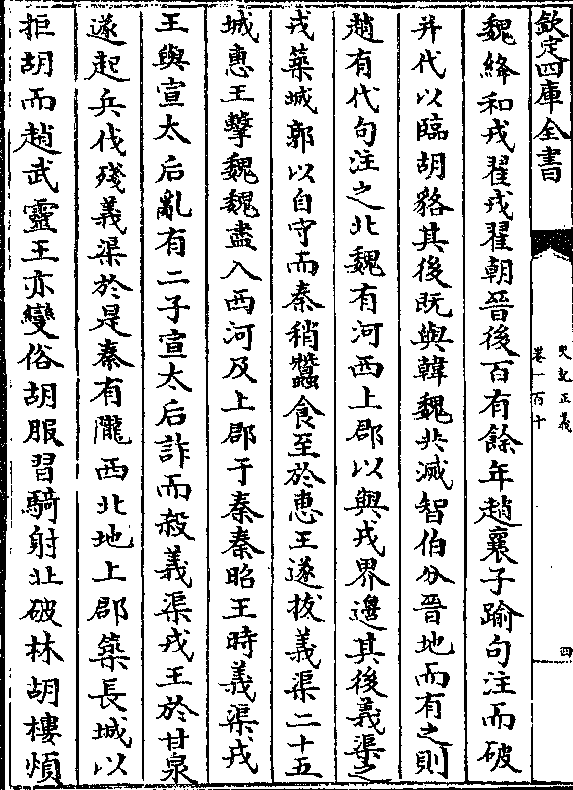 欽定四庫全書
史記正義
卷一百十
四
魏絳和戎翟戎翟朝晉後百有餘年趙襄子踰句注而破
并代以臨胡貉其後既與韓魏共滅智伯分晉地而有之則
趙有代句注之北魏有河西上郡以與戎界邊其後義渠之
戎築城郭以自守而秦稍蠶食至於惠王遂拔義渠二十五
城惠王擊魏魏盡入西河及上郡于秦秦昭王時義渠戎
王與宣太后亂有二子宣太后詐而殺義渠戎王於甘泉
遂起兵伐殘義渠於是秦有隴西北地上郡築長城以
拒胡而趙武靈王亦變俗胡服習騎射北破林胡樓煩